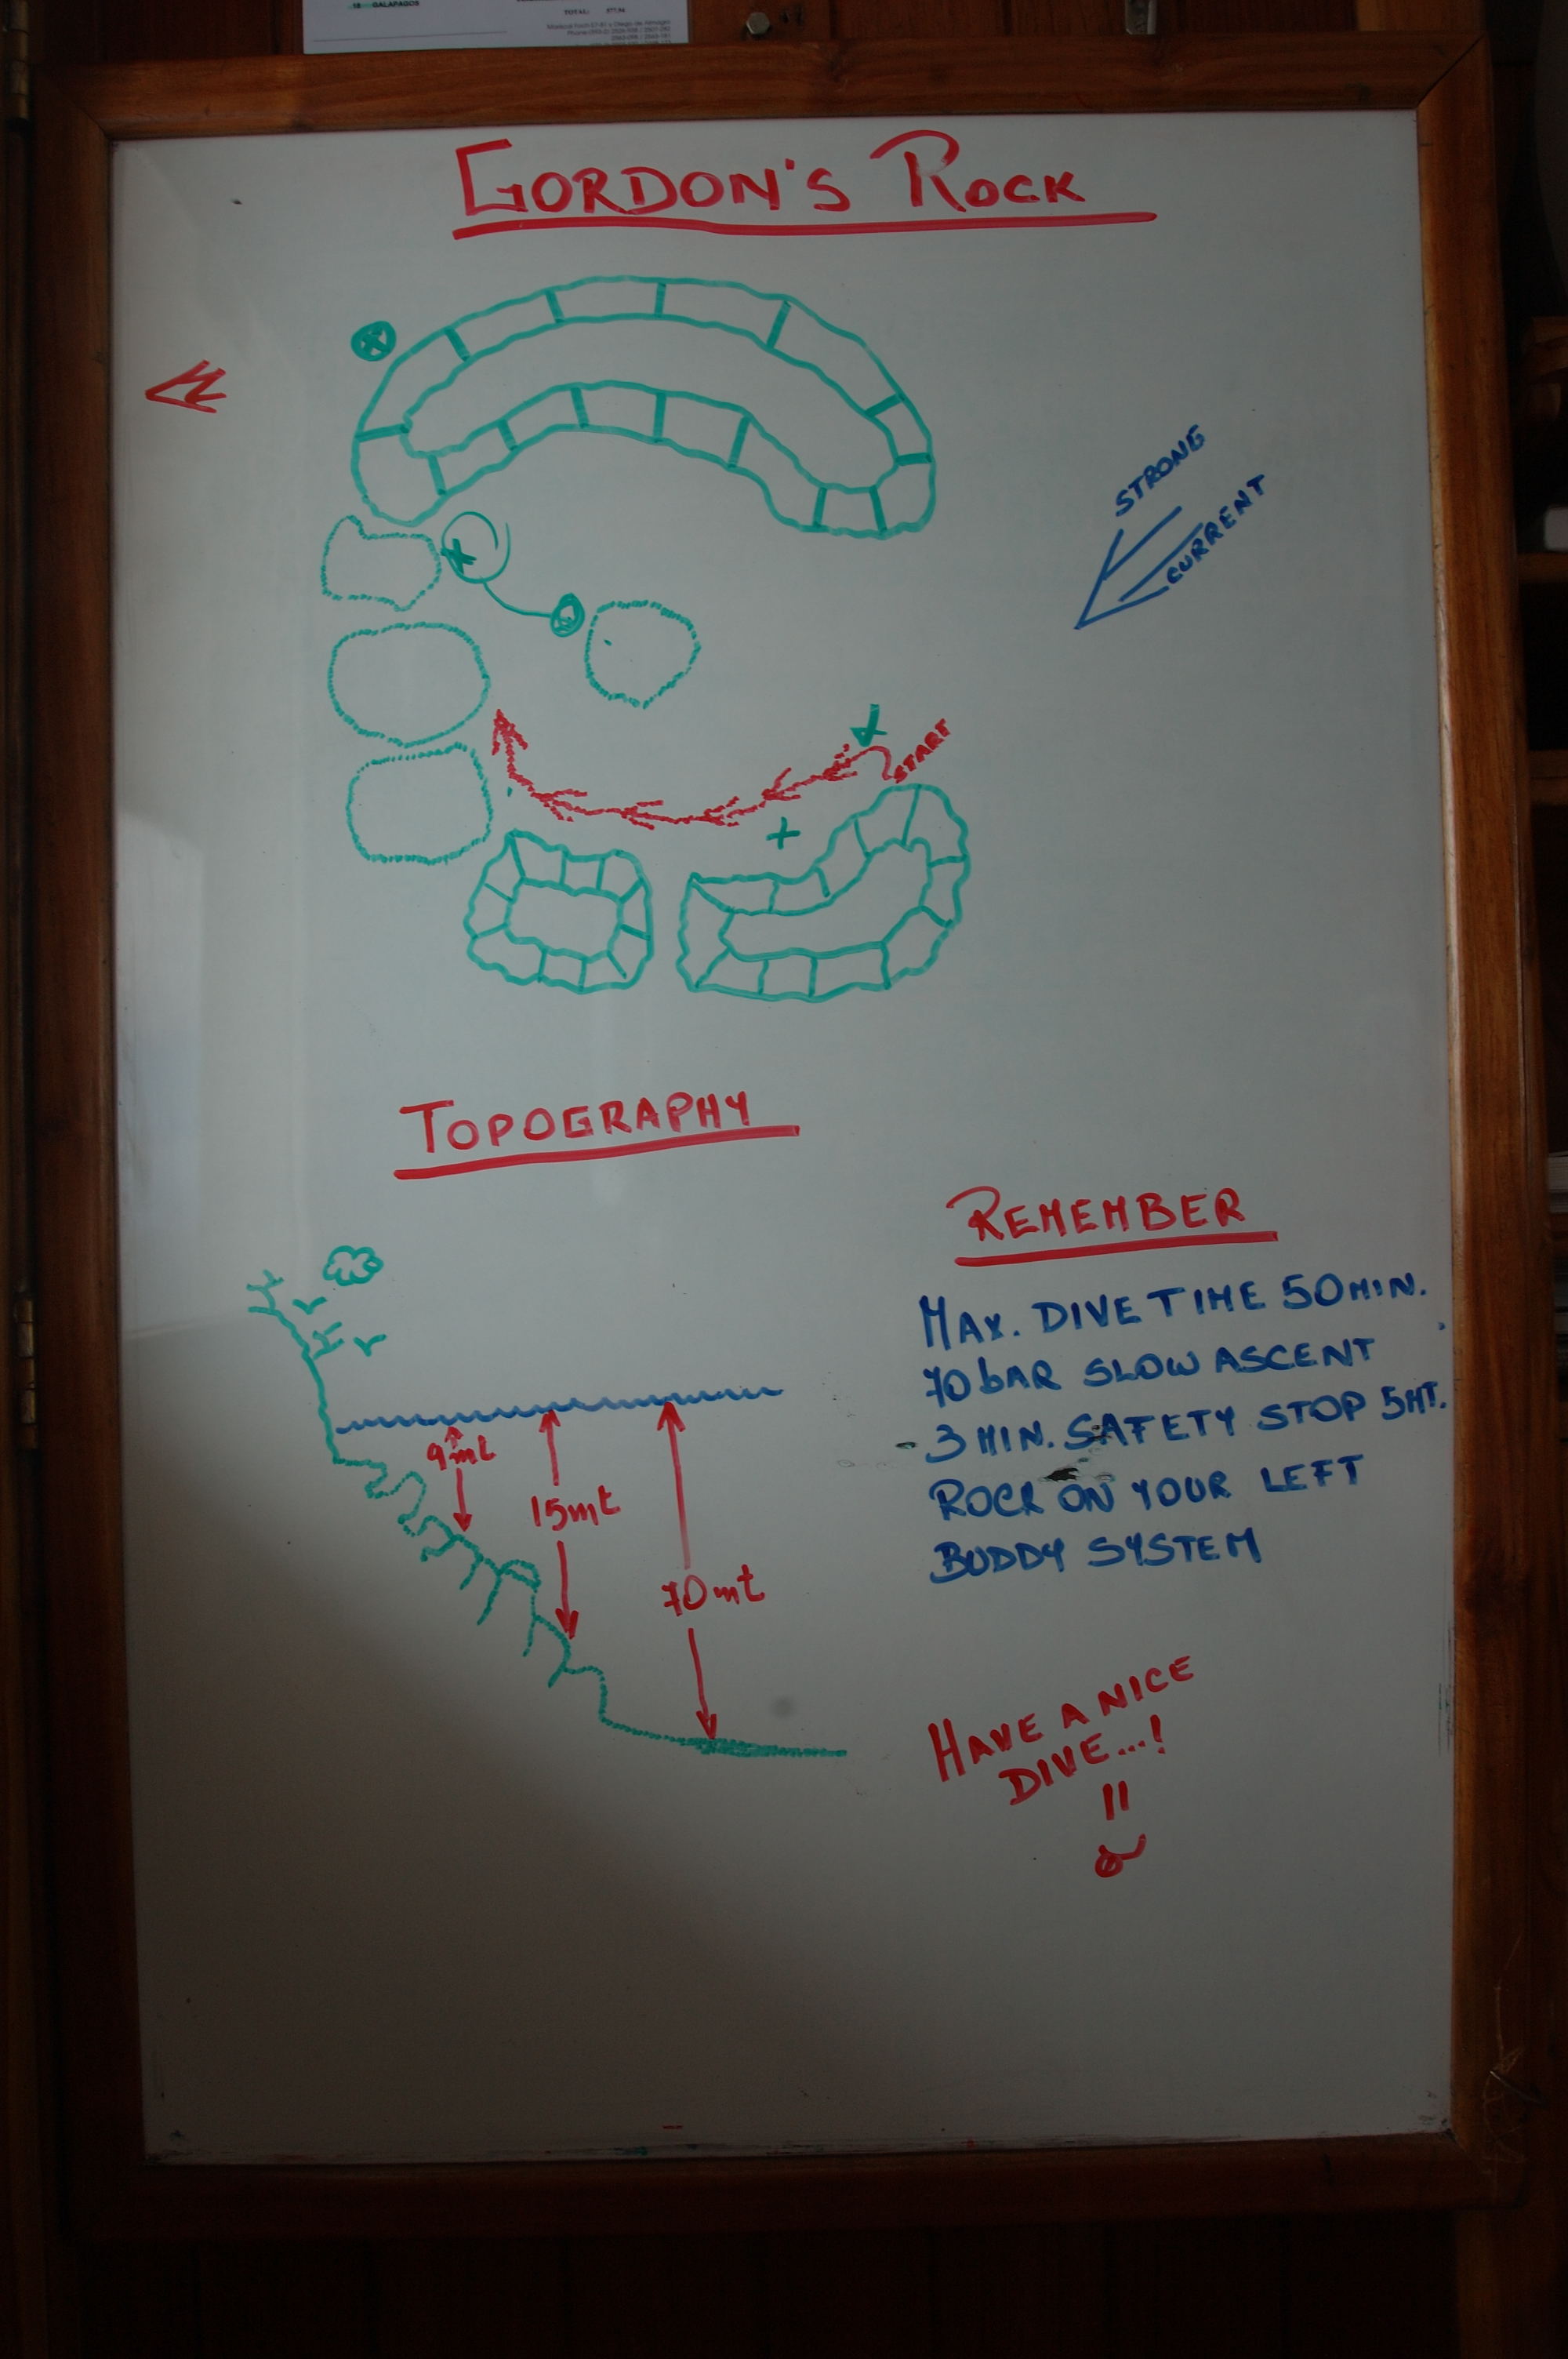 15 GALAPAGOS
TOTAL:
GORDON'S ROCK
STRONG
CURRENT
START
TOPOGRAPHY
9mt
15mt
70mt
REMEMBER
MAX. DIVE TIME 50 MIN.
70 bAR SLOW ASCENT
3 MIN. SAFETY STOP 5MT.
ROCK ON YOUR LEFT
BUDDY SYSTEM
HAVE A NICE
DIVE...!